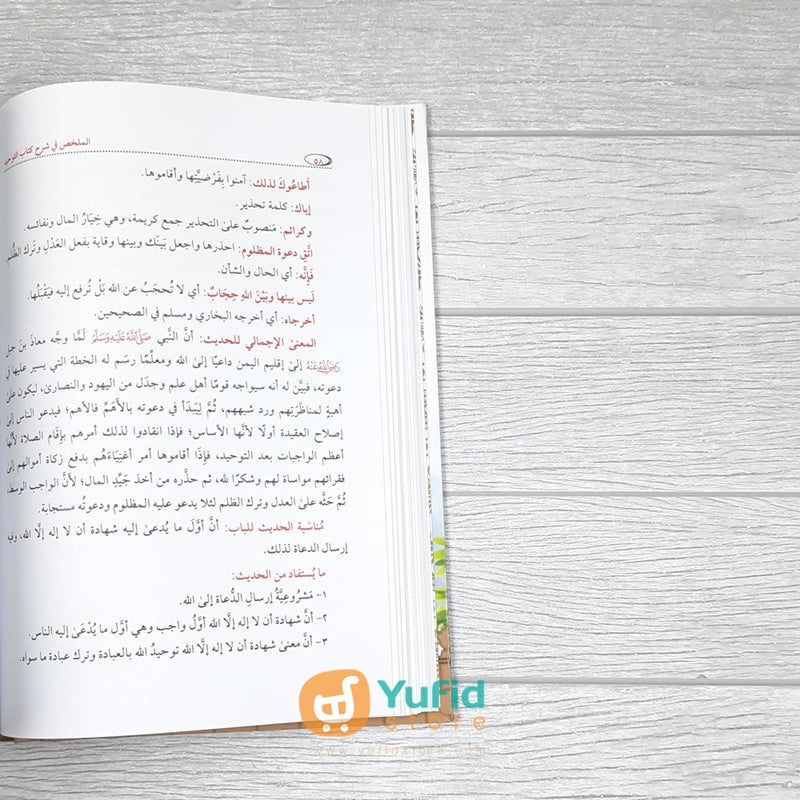 الملخص في شرح كتاب التوحيد
٥٨
أَطاعُوكَ لذلك: آمنوا بِفَرْضيَّتِها وأقاموها.
إياك: كلمة تحذير.
وكرائم: مَنصوبٌ على التحذير جمع كريمة، وهي خِيَارُ المال ونفائسه.
اتَّقِ دعوة المظلوم: احذرها واجعل بَيْنَك وبينها وقاية بفعل العَدْلِ وتَرك الظُّلم.
فَإِنَّه: أي الحال والشأن.
لَيس بينها وبَيْنَ اللهِ حِجَابٌ: أي لا تُحجَبُ عن الله بَلْ تُرفع إليه فيَقْبَلُها.
أخرجاه: أي أخرجه البخاري ومسلم في الصحيحين.
المعنى الإجمالي للحديث: أنَّ النَّبي صَلَّى اللهُ عَلَيْهِ وَسَلَّمَ لَمَّا وجَّه معاذَ بنَ جبل
رَضِيَ اللهُ عَنْهُ إلى إقليم اليمن داعيًا إلى الله ومعلِّمًا رسَم له الخطة التي يسير عليها في
دعوته، فبيَّن له أنه سيواجه قومًا أهل علم وجدَل من اليهود والنصارى، ليكون على
أهبةٍ لمناظَرَتِهم ورد شبههم، ثُمَّ لِيَبْدَأ في دعوته بالأَهَمِّ فالأهم؛ فيدعو الناس إلى
إصلاح العقيدة أولًا لأنَّها الأساس؛ فإذا انقادوا لذلك أمرهم بإقَامِ الصلاة لأنَّها
أعظم الواجبات بعد التوحيد، فإِذَا أقاموها أمر أغنِيَاءَهُم بدفع زكاة أموالهم إلى
فقرائهم مواساة لهم وشكرًا لله، ثم حذَّره من أخذ جَيِّدِ المال؛ لأنَّ الواجب الوسط،
ثُمَّ حَثَّه على العدل وترك الظلم لئلا يدعو عليه المظلوم ودعوتُه مستجابة.
مُناسَبة الحديث للباب: أنَّ أوَّلَ ما يُدعى إليه شهادة أن لا إله إلَّا الله، وفيه
إرسال الدعاة لذلك.
ما يُستفاد من الحديث:
١- مَشْروعِيَّةُ إرسالِ الدُّعاة إلى الله.
٢- أنَّ شهادة أن لا إله إلَّا الله أوَّلُ واجب وهي أوَّل ما يُدْعَى إليه الناس.
٣- أنَّ معنى شهادة أن لا إله إلَّا الله توحيدُ الله بالعبادة وترك عبادة ما سواه.
Yufid
store
www.yufidstore.com